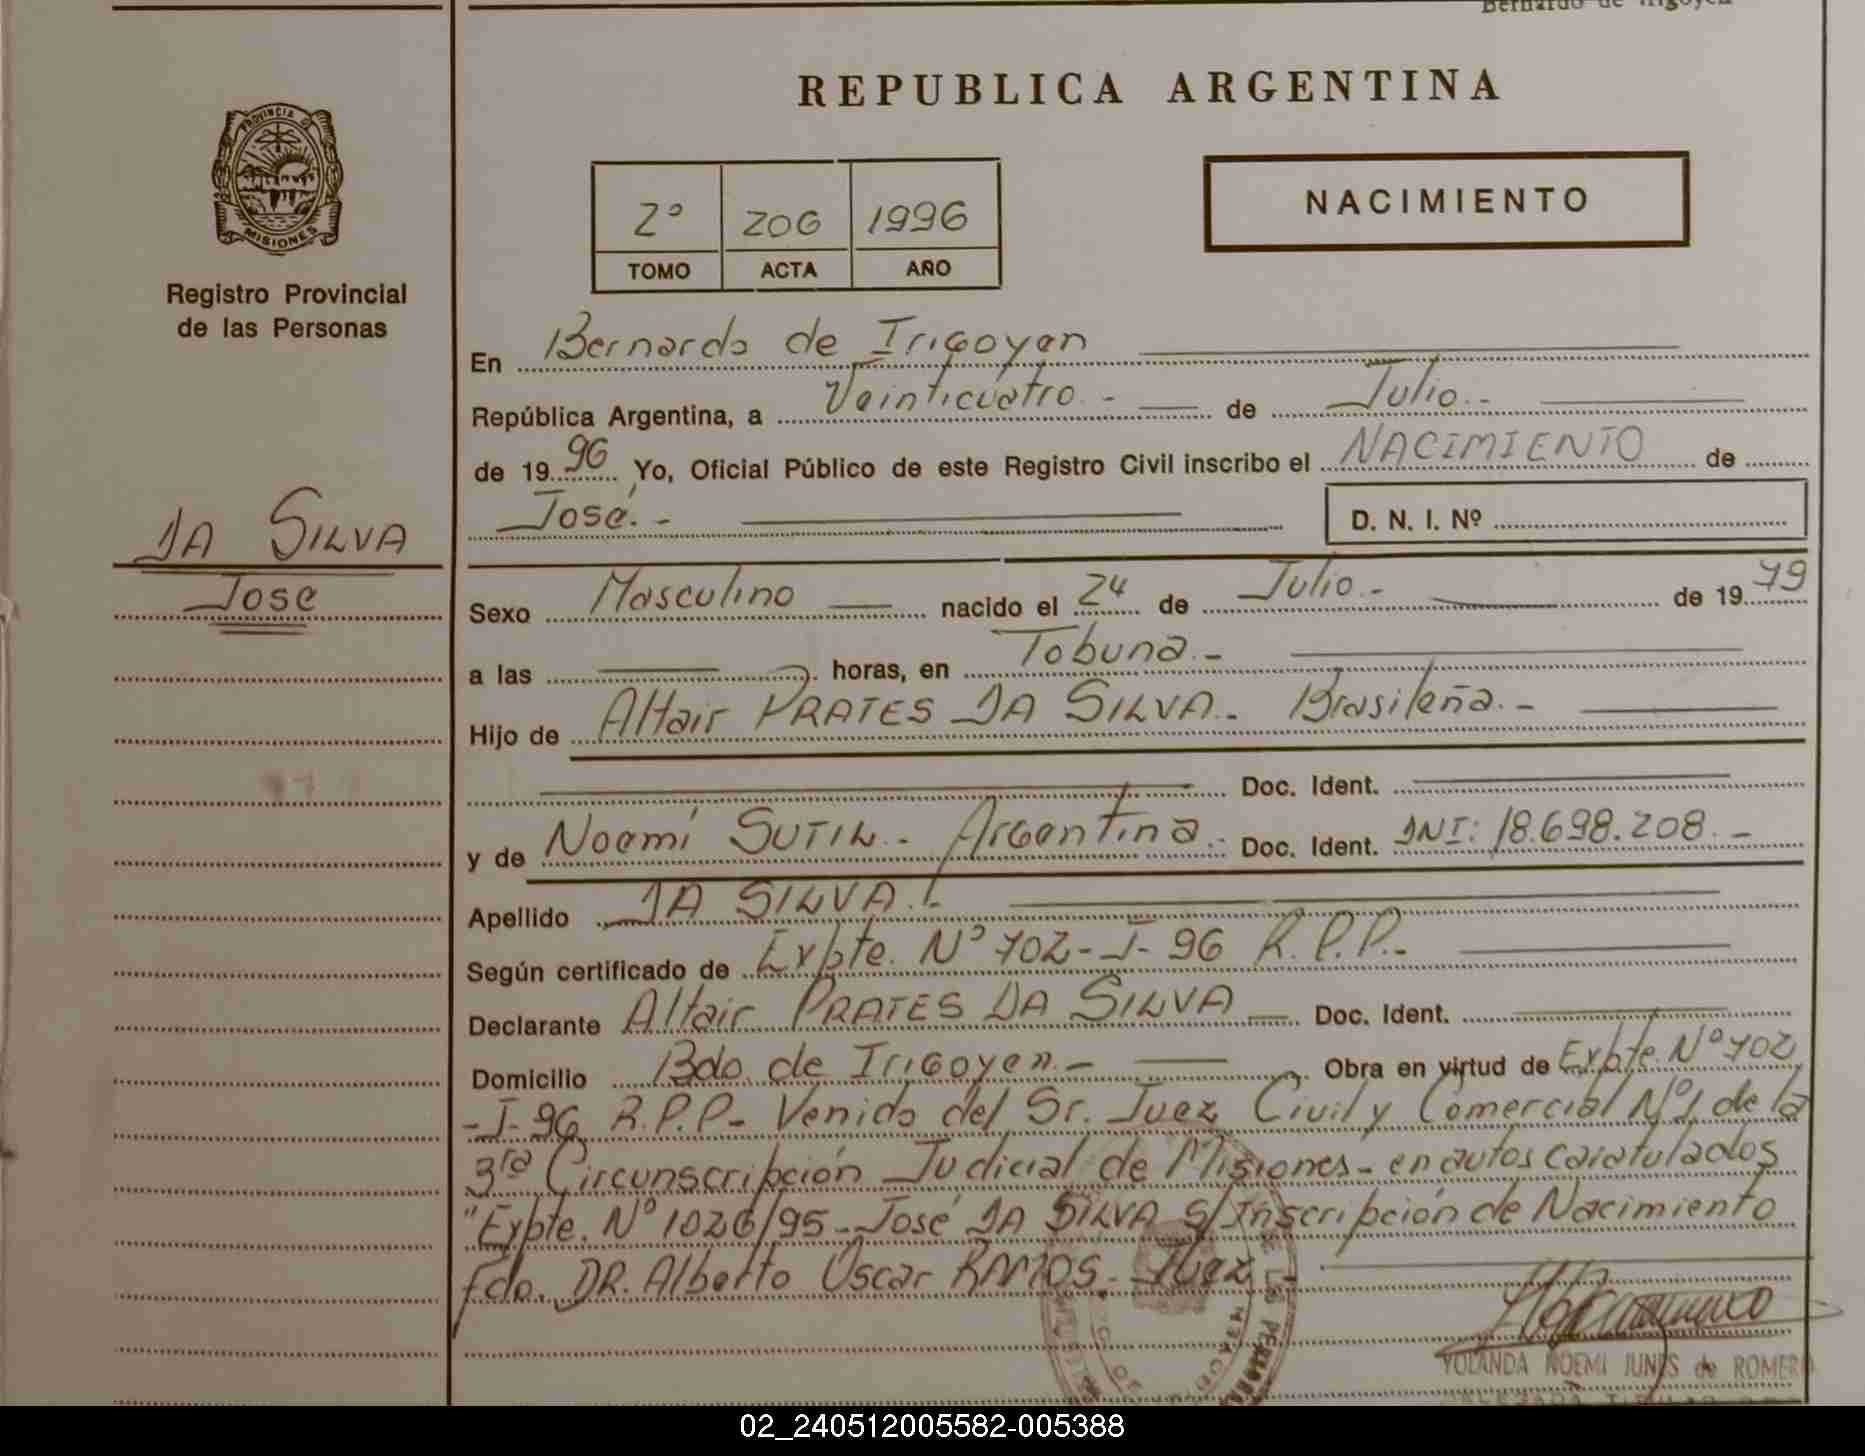 Bernardo de Irigoyen
REPUBLICA ARGENTINA
PROVINCIA DE
MISIONES
Registro Provincial
de las Personas
2º 206 1996
TOMO ACTA AÑO
NACIMIENTO
En Bernardo de Irigoyen
República Argentina, a Veinticuatro.- de Julio.-
de 1996 Yo, Oficial Público de este Registro Civil inscribo el NACIMIENTO de
José.- D. N. I. Nº
DA SILVA
José
Sexo Masculino nacido el 24 de Julio.- de 1979
a las horas, en Tobuna.-
Hijo de Altair PRATES DA SILVA.- Brasileña.-
Doc. Ident.
y de Noemí SUTIL.- Argentina.- Doc. Ident. DNI: 18.698.208.-
Apellido DA SILVA.-
Según certificado de Expte. Nº 702-J-96 R.P.P.-
Declarante ALtair PRATES DA SILVA Doc. Ident.
Domicilio Bdo. de Irigoyen.- Obra en virtud de Expte. Nº 702
-J-96 R.P.P.- Venido del Sr. Juez Civil y Comercial Nº1 de la
3ra Circunscripción Judicial de Misiones- en autos caratulados
"Expte. Nº 1026/95-José DA SILVA S/Inscripción de Nacimiento
fdo. DR. Alberto Oscar RAMOS. Juez
YOLANDA NOEMI JUNES de ROMERO
02_240512005582-005388